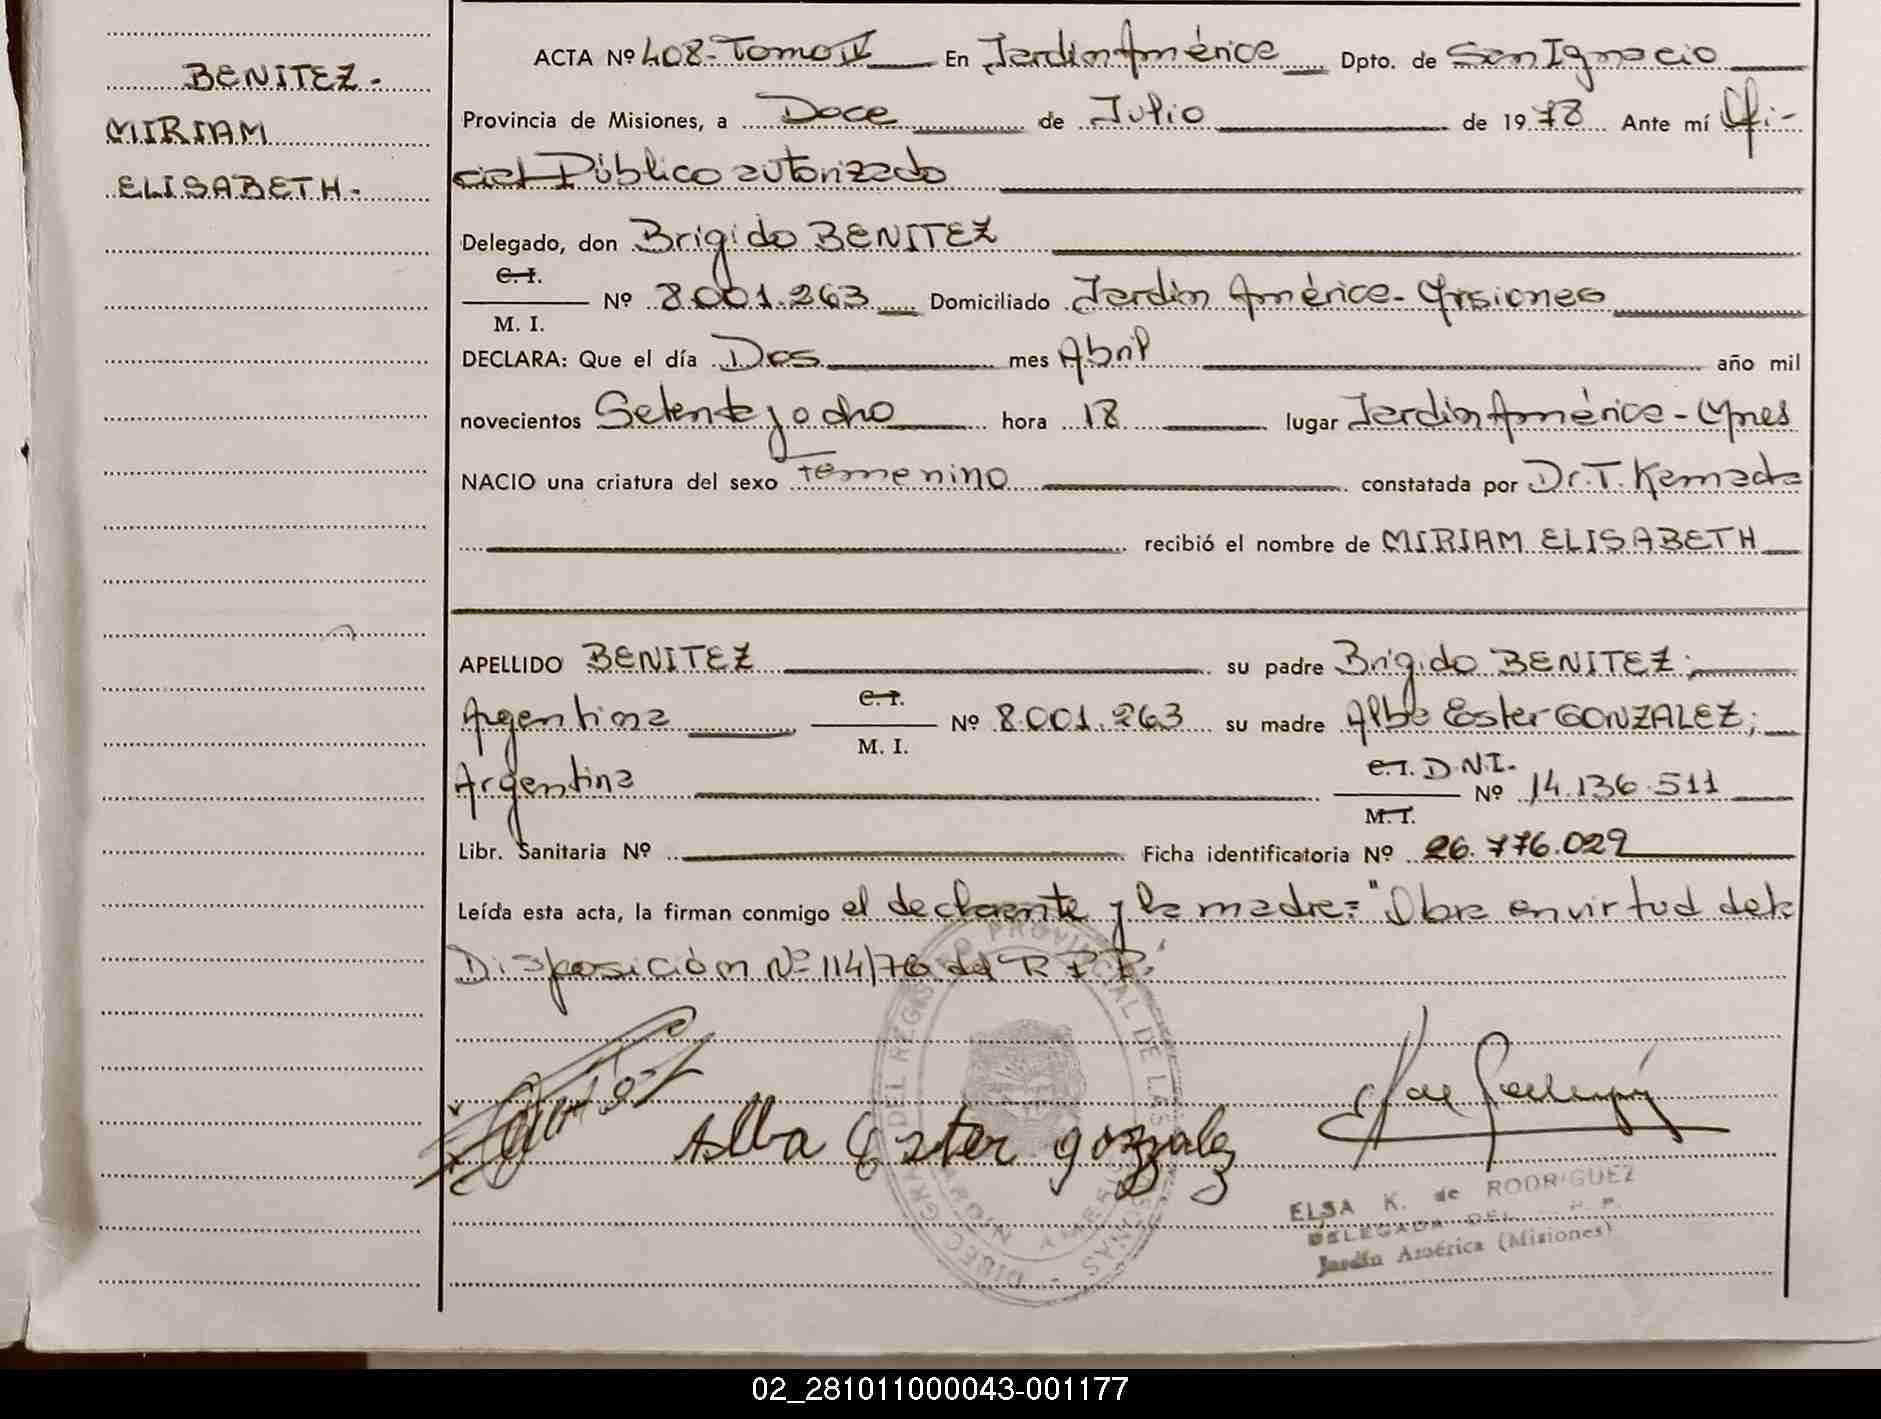 BENITEZ-
MIRIAM
ELISABETH-
ACTA Nº 408-Tomo IV En Jardín América Dpto. de San Ignacio
Provincia de Misiones, a Doce de Julio de 1978 Ante mí Ofi-
cial Público autorizado
Delegado, don Brígido BENITEZ
C. I.
M. I. Nº 8.001.263 Domiciliado Jardín América-Misiones
DECLARA: Que el día Dos mes Abril año mil
novecientos Setenta y ocho hora 18 lugar Jardín América-Mnes
NACIO una criatura del sexo Femenino constatada por Dr. T. Kamada
recibió el nombre de MIRIAM ELISABETH
APELLIDO BENITEZ su padre Brígido BENITEZ;
Argentina C. I.
M. I. Nº 8.001.263 su madre Alba Ester GONZALEZ;
Argentina C. I. D.N.I.
M. I. Nº 14.136.511
Libr. Sanitaria Nº Ficha identificatoria Nº 26.776.029
Leída esta acta, la firman conmigo el declarante y la madre= "Obra en virtud de la
Disposición Nº 114/76 del R.P.P."
Alba Ester gozzalez
ELSA K. de RODRIGUEZ
DELEGADA DEL R. P.
Jardín América (Misiones)
02_281011000043-001177